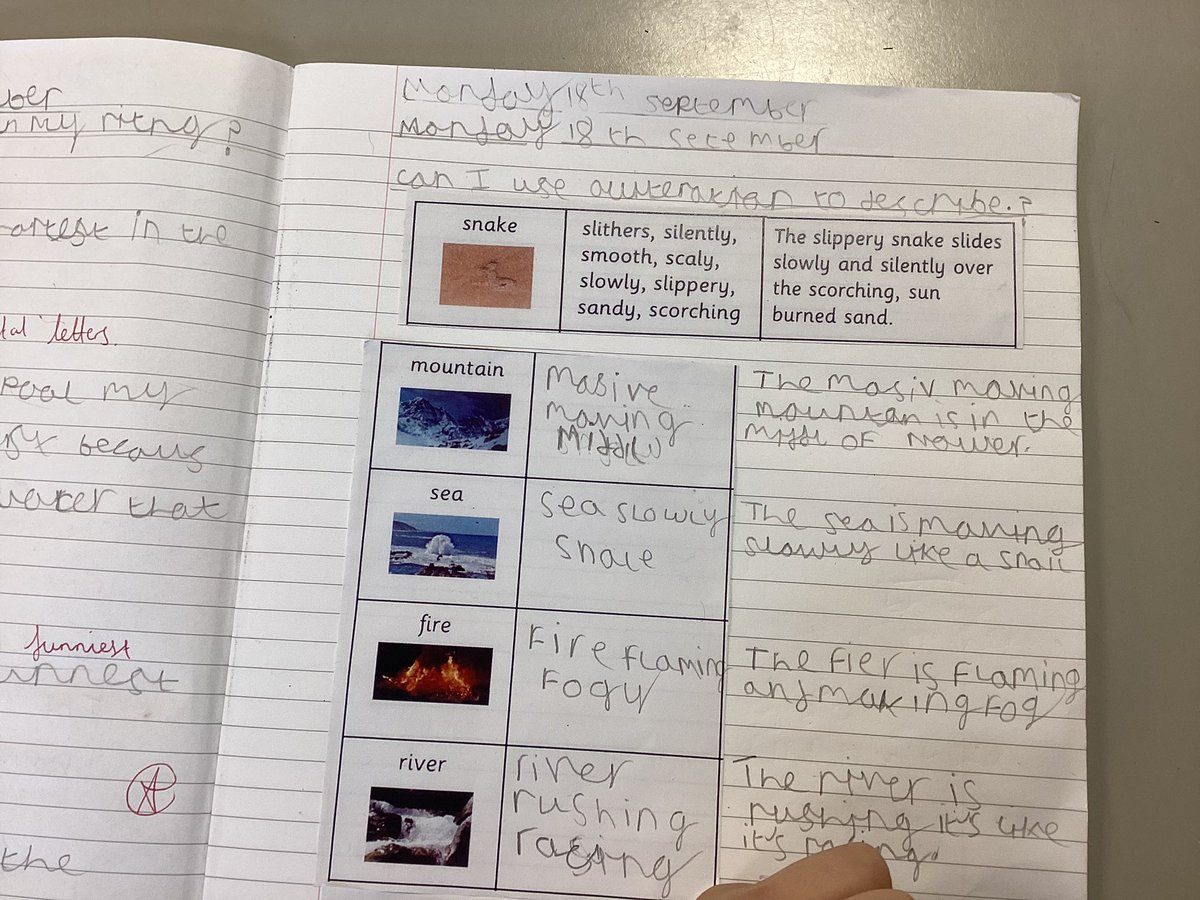 ber
n my riting?
artest in the
tal letters.
my
becaus
that
funniest
unnest
the
Monday 18th september
Monday 18th setember
can I use aliteraktian to describe.?
snake
slithers, silently,
smooth, scaly,
slowly, slippery,
sandy, scorching
The slippery snake slides
slowly and silently over
the scorching, sun
burned sand.
mountain
Masive
moving
Middle
The masiv moving
mountan is in the
middl of nower.
sea
sea slowly
snale
The sea is moving
slowly like a snail
fire
Fire flaming
Fogy
The fier is flaming
and making fog
river
river
rushing
racing
The river is
rushing it's like
it's